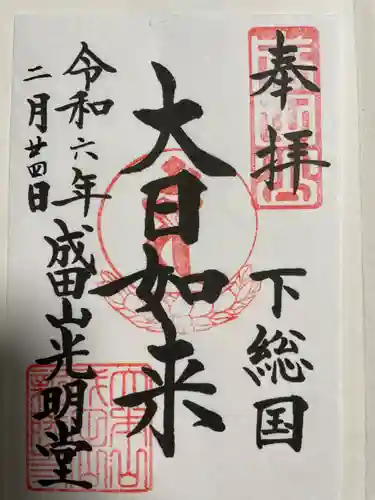 奉拝
下総国
大日如来
令和六年
二月廿四日
成田山光明堂